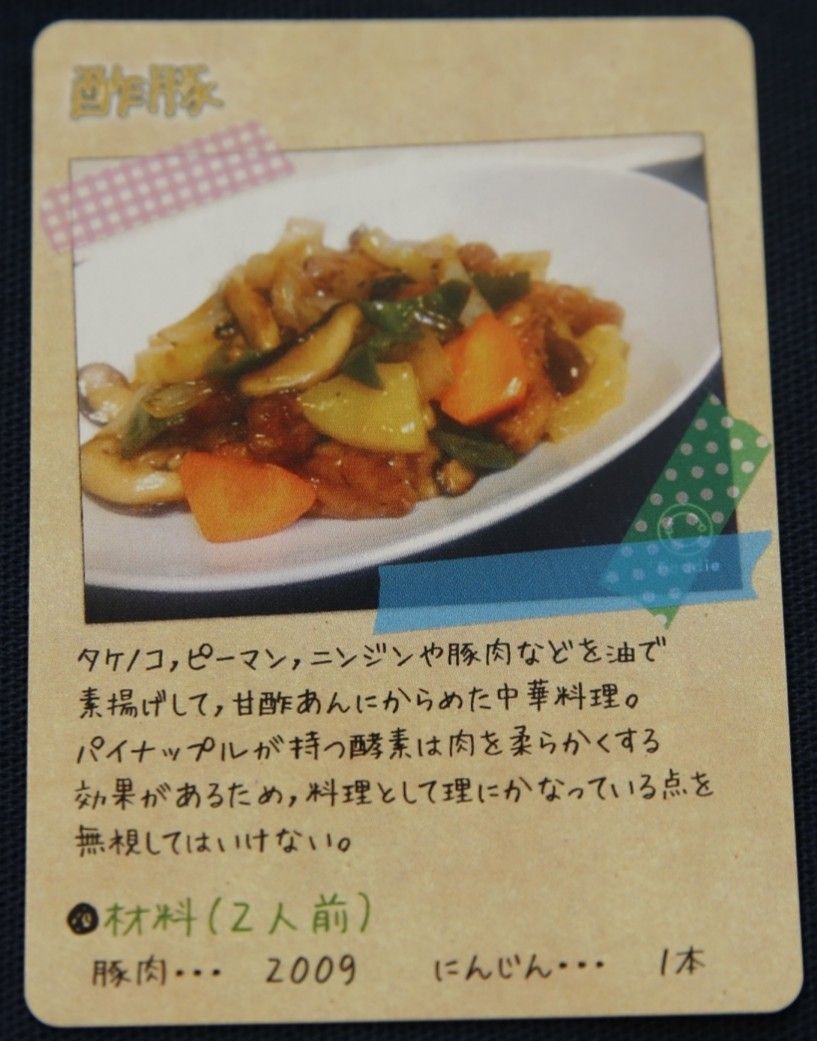 酢豚
foodie
タケノコ,ピーマン,ニンジンや豚肉などを油で
素揚げして,甘酢あんにからめた中華料理。
パイナップルが持つ酵素は肉を柔らかくする
効果があるため,料理として理にかなっている点を
無視してはいけない。
材料(2人前)
豚肉・・・ 200g にんじん・・・ 1本